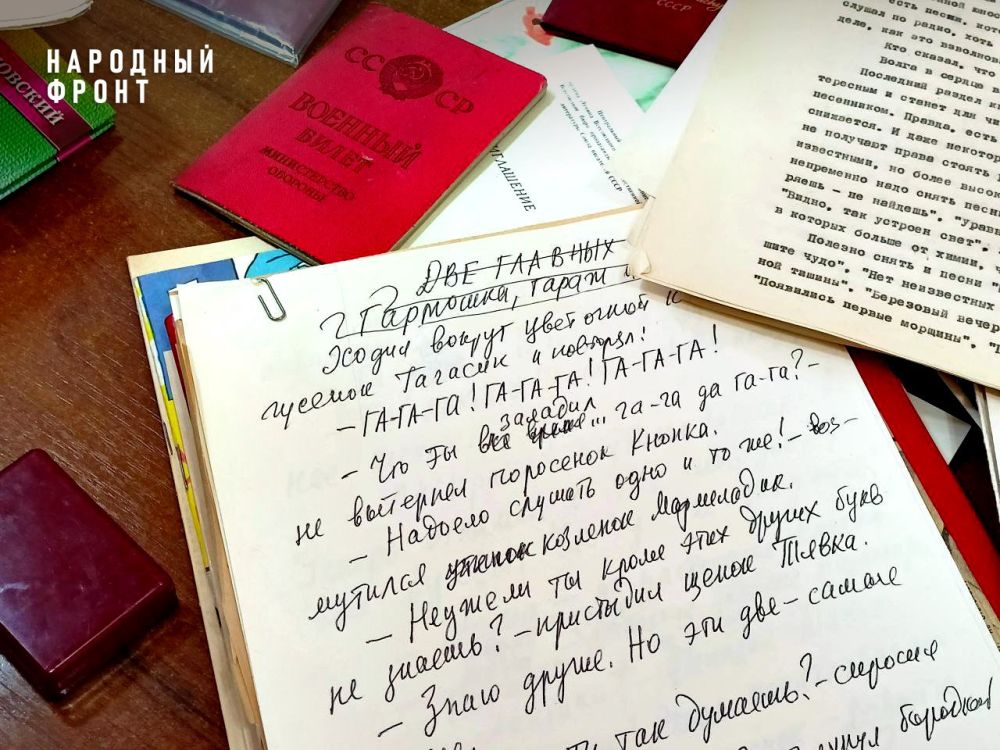 НАРОДНЫЙ
ФРОНТ
ОВСКИЙ
СССР
ВОЕННЫЙ
БИЛЕТ
МИНИСТЕРСТВО
ОБОРОНЫ
СССР
Центральный
СССР
ГЛАШЕНИЕ
есть песни, кот
слушал по радио, хоть
деле, как это взволнов
Кто сказал, что
Волга в сердце
Последний раздел
тересным и станет для чи
песенником. Правда, есть
снижается. И даже некотор
не получает права стоять
известными, но более высок
непременно надо снять песн
ряешь - не найдешь", "урави
"Видно, так устроен свет",
в которых больше от химии, ч
Полезно снять и песни "
шите чудо", "Нет неизвестных
ной тишины", "Березовый вечер
"Появились первые морщины",
ДВЕ ГЛАВНЫХ
Гармошка, гараж
Ходил вокруг цветочной
гусенок Гагасик и повторял:
- ГА-ГА-ГА! ГА-ГА-ГА! ГА-ГА-ГА!
заладил
- Что ты все время... га-га да га-га? -
не вытерпел поросенок Кнопка.
- Надоело слушать одно и то же! - воз-
мутился утенок козленок Мармеладик.
- Неужели ты кроме этих других букв
не знаешь? - пристыдил щенок Тявка.
- Знаю другие. Но эти две - самые
ты так думаешь? - спросил
бородкой